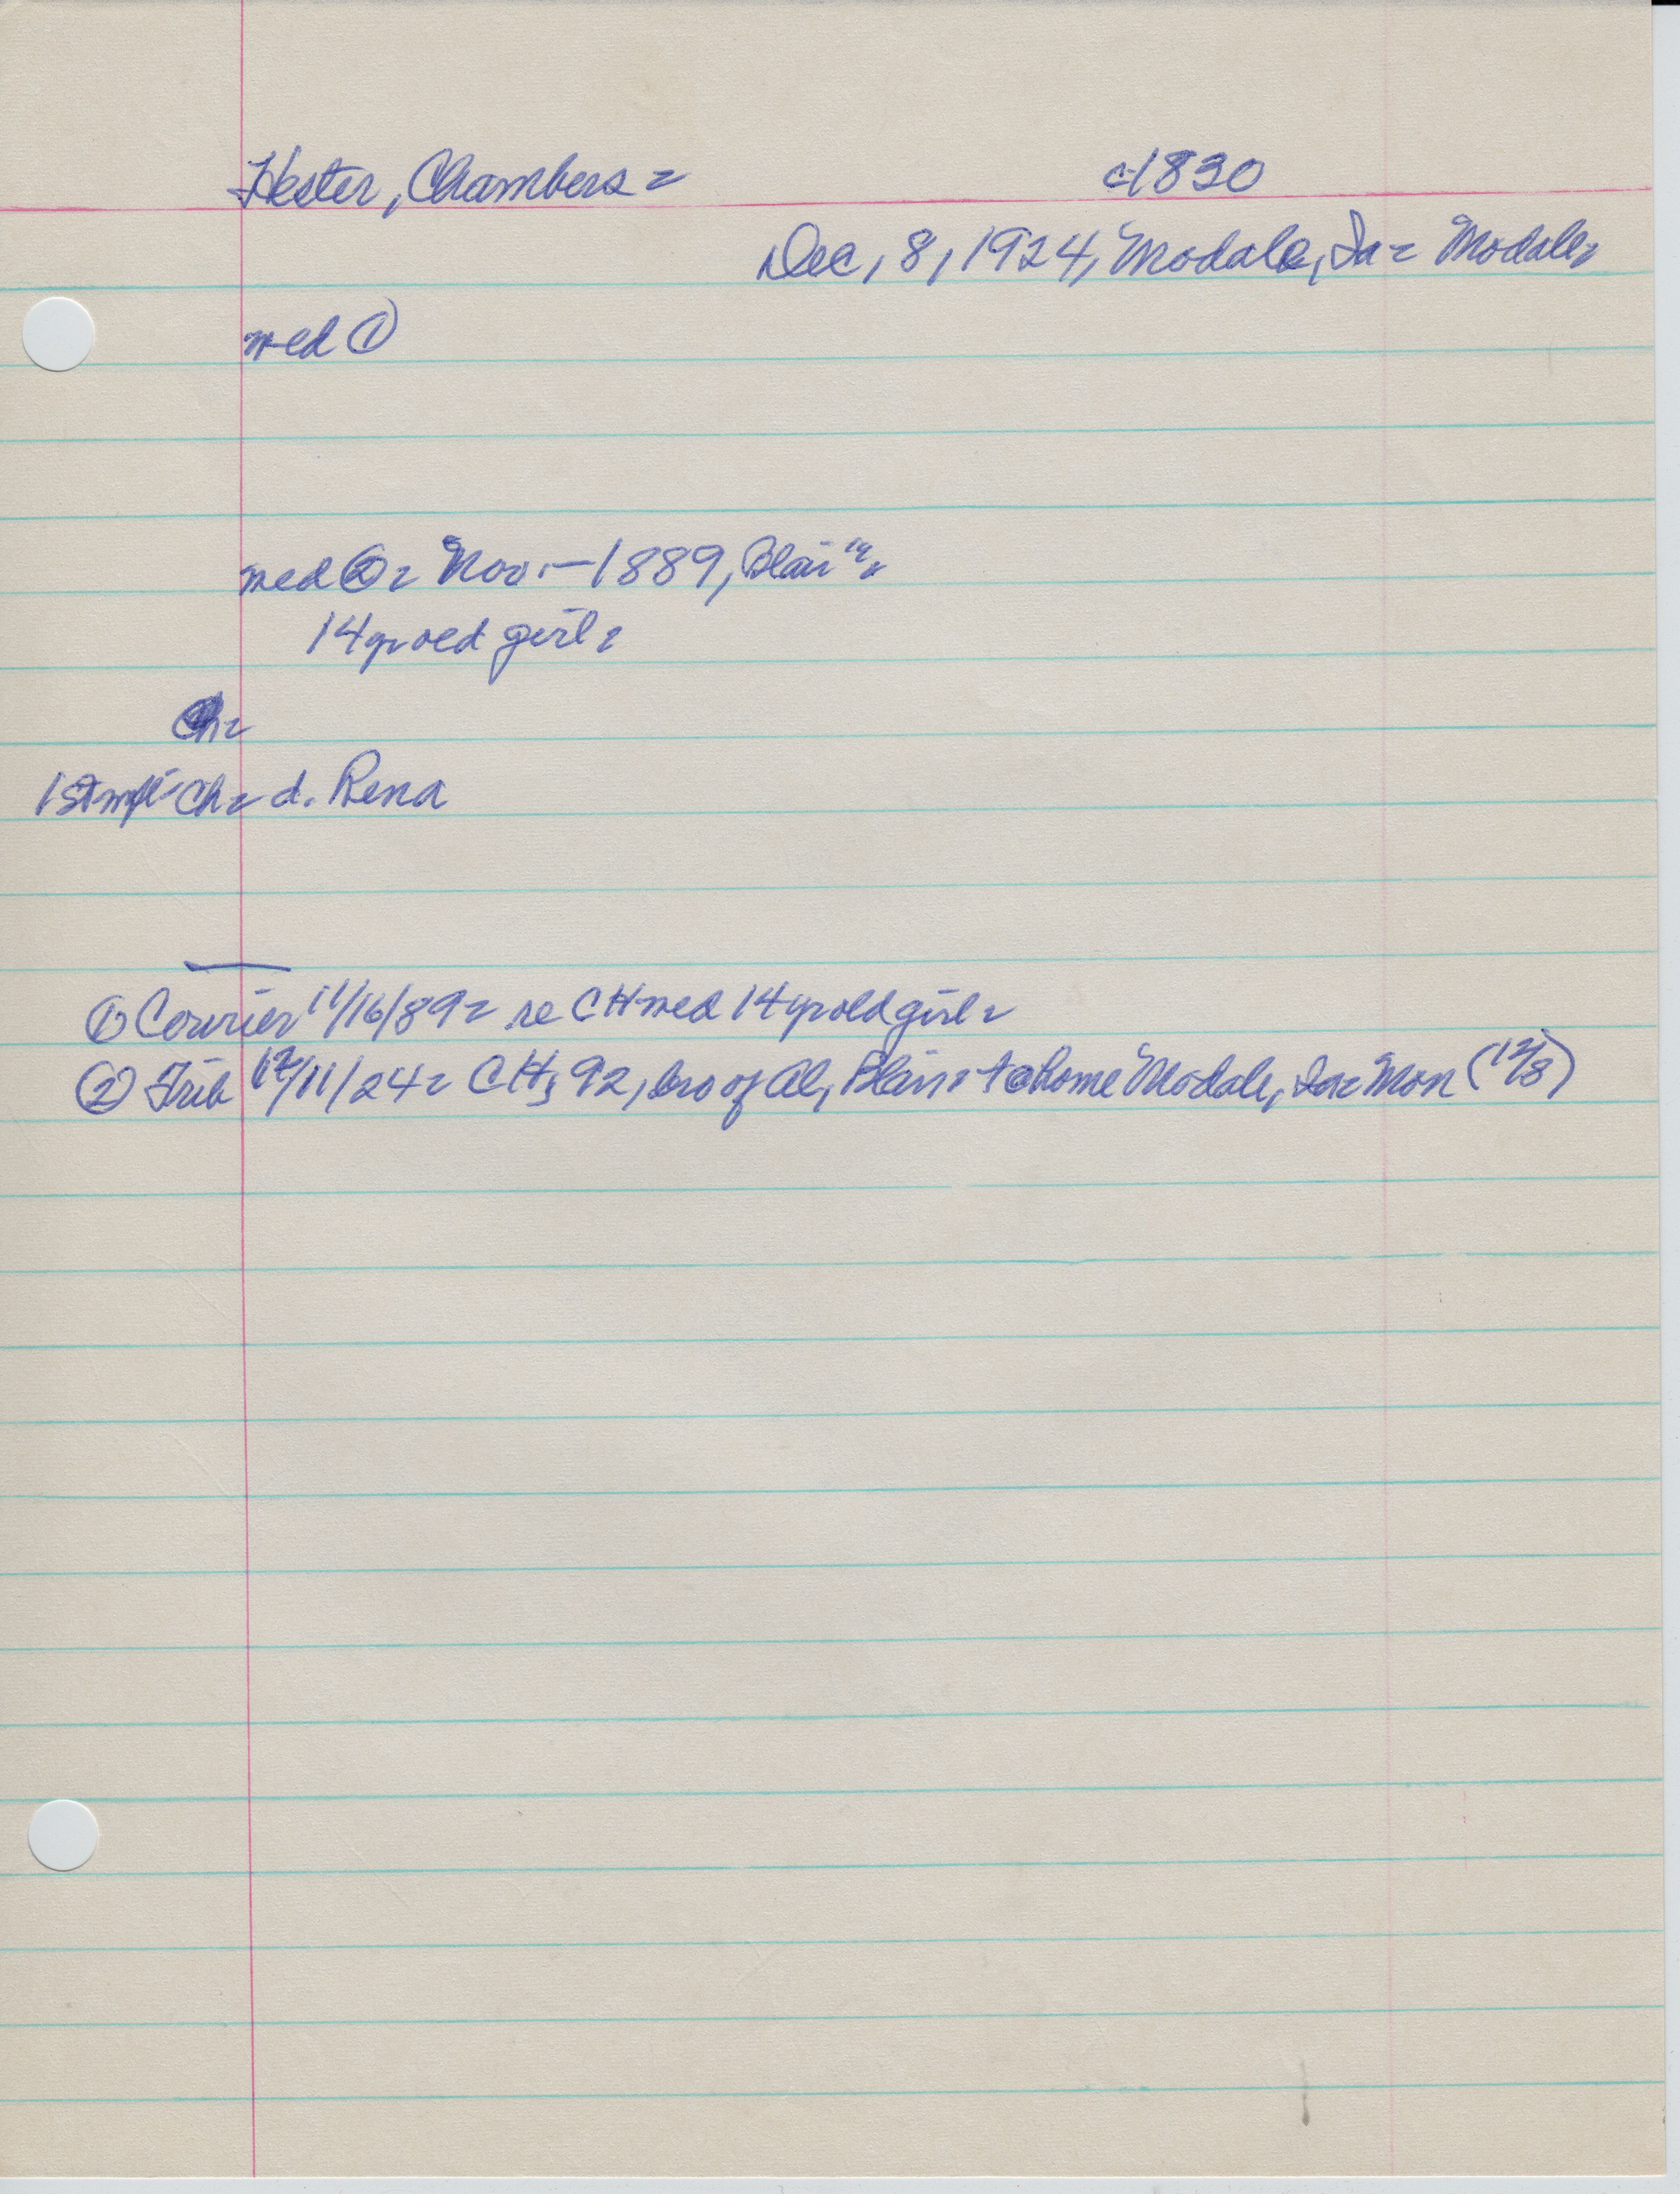 Hester, Chambers = c1830
Dec, 8, 1924, Modale, Ia = Modale,
med ①
med ② = Nov. — 1889, Blair
14 yr old girl =
Ch =
1st wife Ch = d. Rena
① Courier 11/16/89 = re CH med 14 yr old girl =
② Trib 12/11/24 = CH, 92, bro of Al, Blair, + @ home Modale, Ia = Mon (12/8)